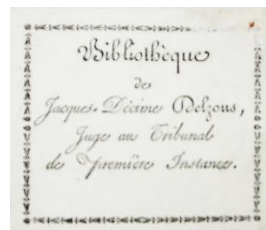 Bibliothèque
de
Jacques-Décime Delzons,
Juge au Tribunal
de première Instance.